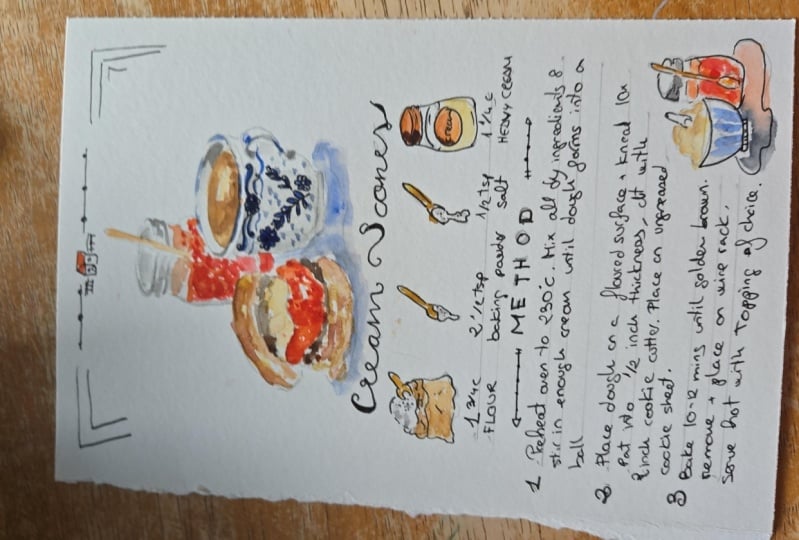 Cream Scones
cream
1 3/4c 2 1/2 tsp 1/2 tsp 1 1/4 c
FLOUR baking powder salt HEAVY CREAM
METHOD
1 Preheat oven to 230°C. Mix all dry ingredients &
stir in enough cream until dough forms into a
ball
2 Place dough on a floured surface + knead 10x
Pat into 1/2 inch thickness, cut with
2inch cookie cutter. Place on ungreased
cookie sheet.
3 Bake 10-12 mins until golden brown.
remove + place on wire rack.
Serve hot with Topping of choice.